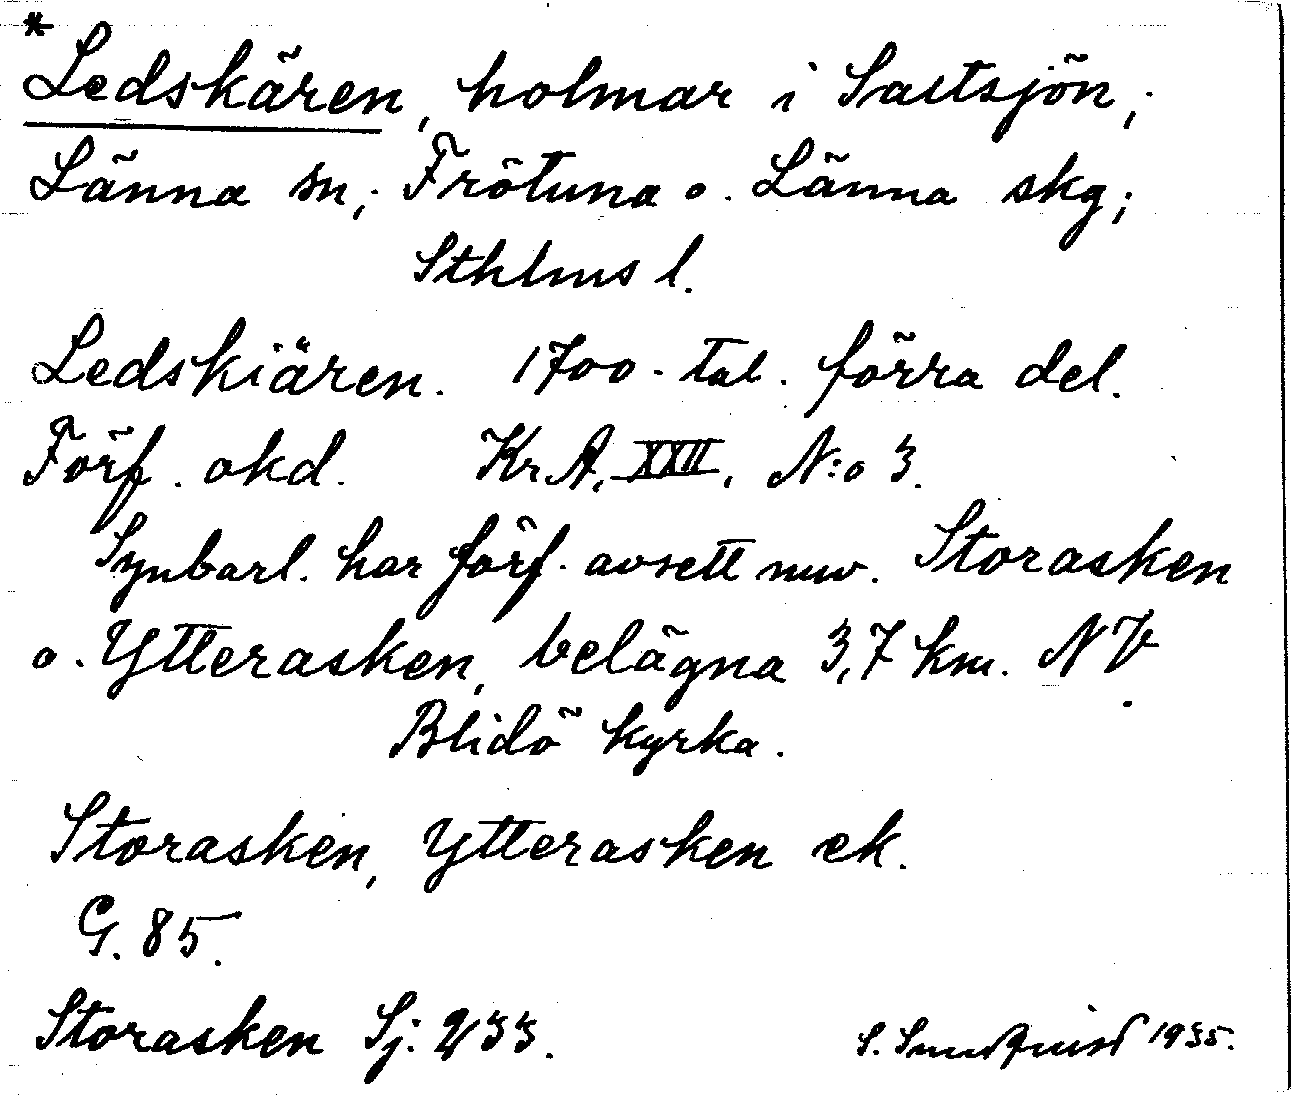 *Ledskären, holmar i Saltsjön;
Länna sn; Frötuna o. Länna skg;
Sthlms l.
Ledskiären. 1700-tal. förra del.
Förf. okd. KrA, XXII, N:o 3.
Synbarl. har förf. avsett nuv. Storasken
o. Ytterasken, belägna 3,7 km. NV
Blidö kyrka.
Storasken, Ytterasken ek.
G. 85.
Storasken Sj. 233.
S. Sundquist 1935.